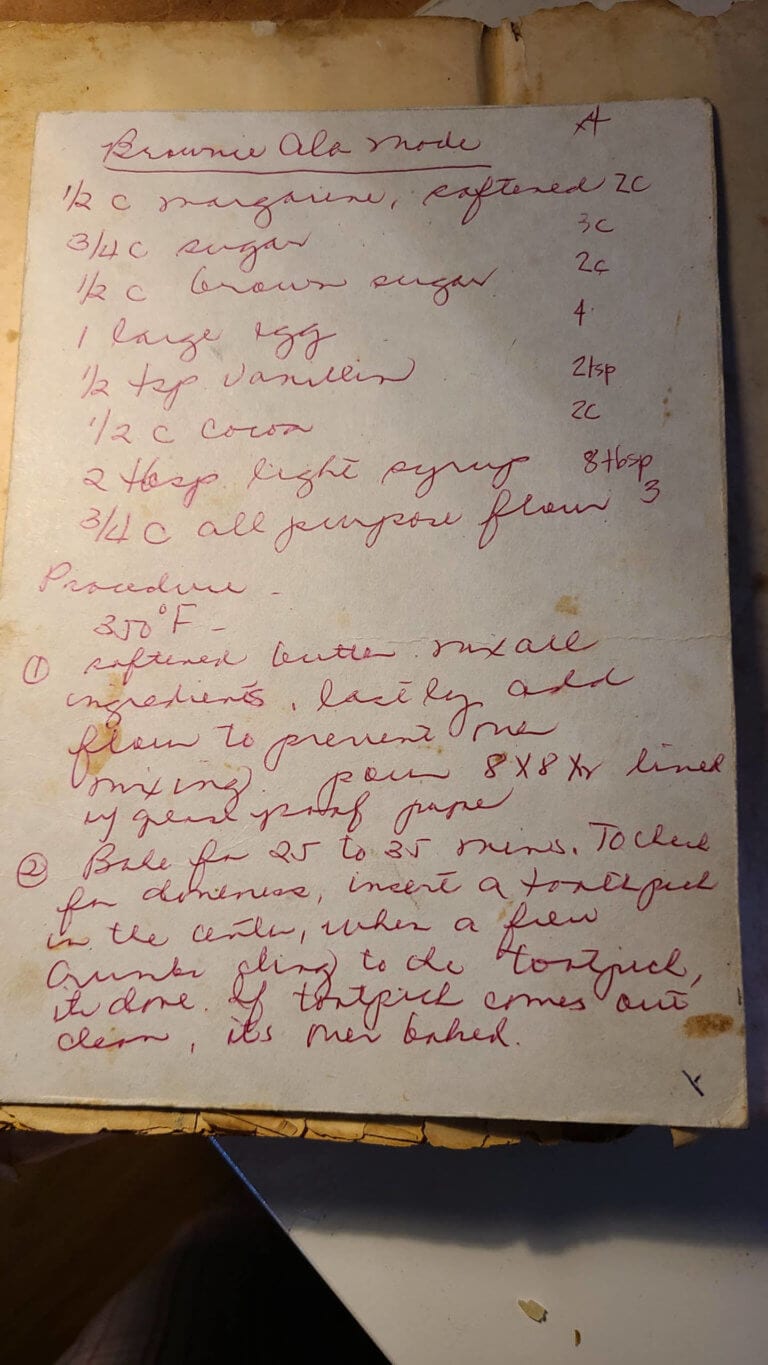 Brownie Ala Mode
1/2 c margarine, softened 2c
3/4 c sugar 3c
1/2 c brown sugar 2c
1 large egg 4
1/2 tsp vanillin 2tsp
1/2 c cocoa 2c
2 tbsp light syrup 8tbsp
3/4 c all purpose flour 3
Procedure -
350°F -
① softened butter mix all
ingredients, lastly add
flour to prevent over
mixing pour 8X8X2 lined
w/ grease proof paper
② Bake for 25 to 35 mins. To check
for doneness, insert a toothpick
in the center, when a few
crumbs cling to the tootpick,
its done. If tootpick comes out
clean, its over baked.